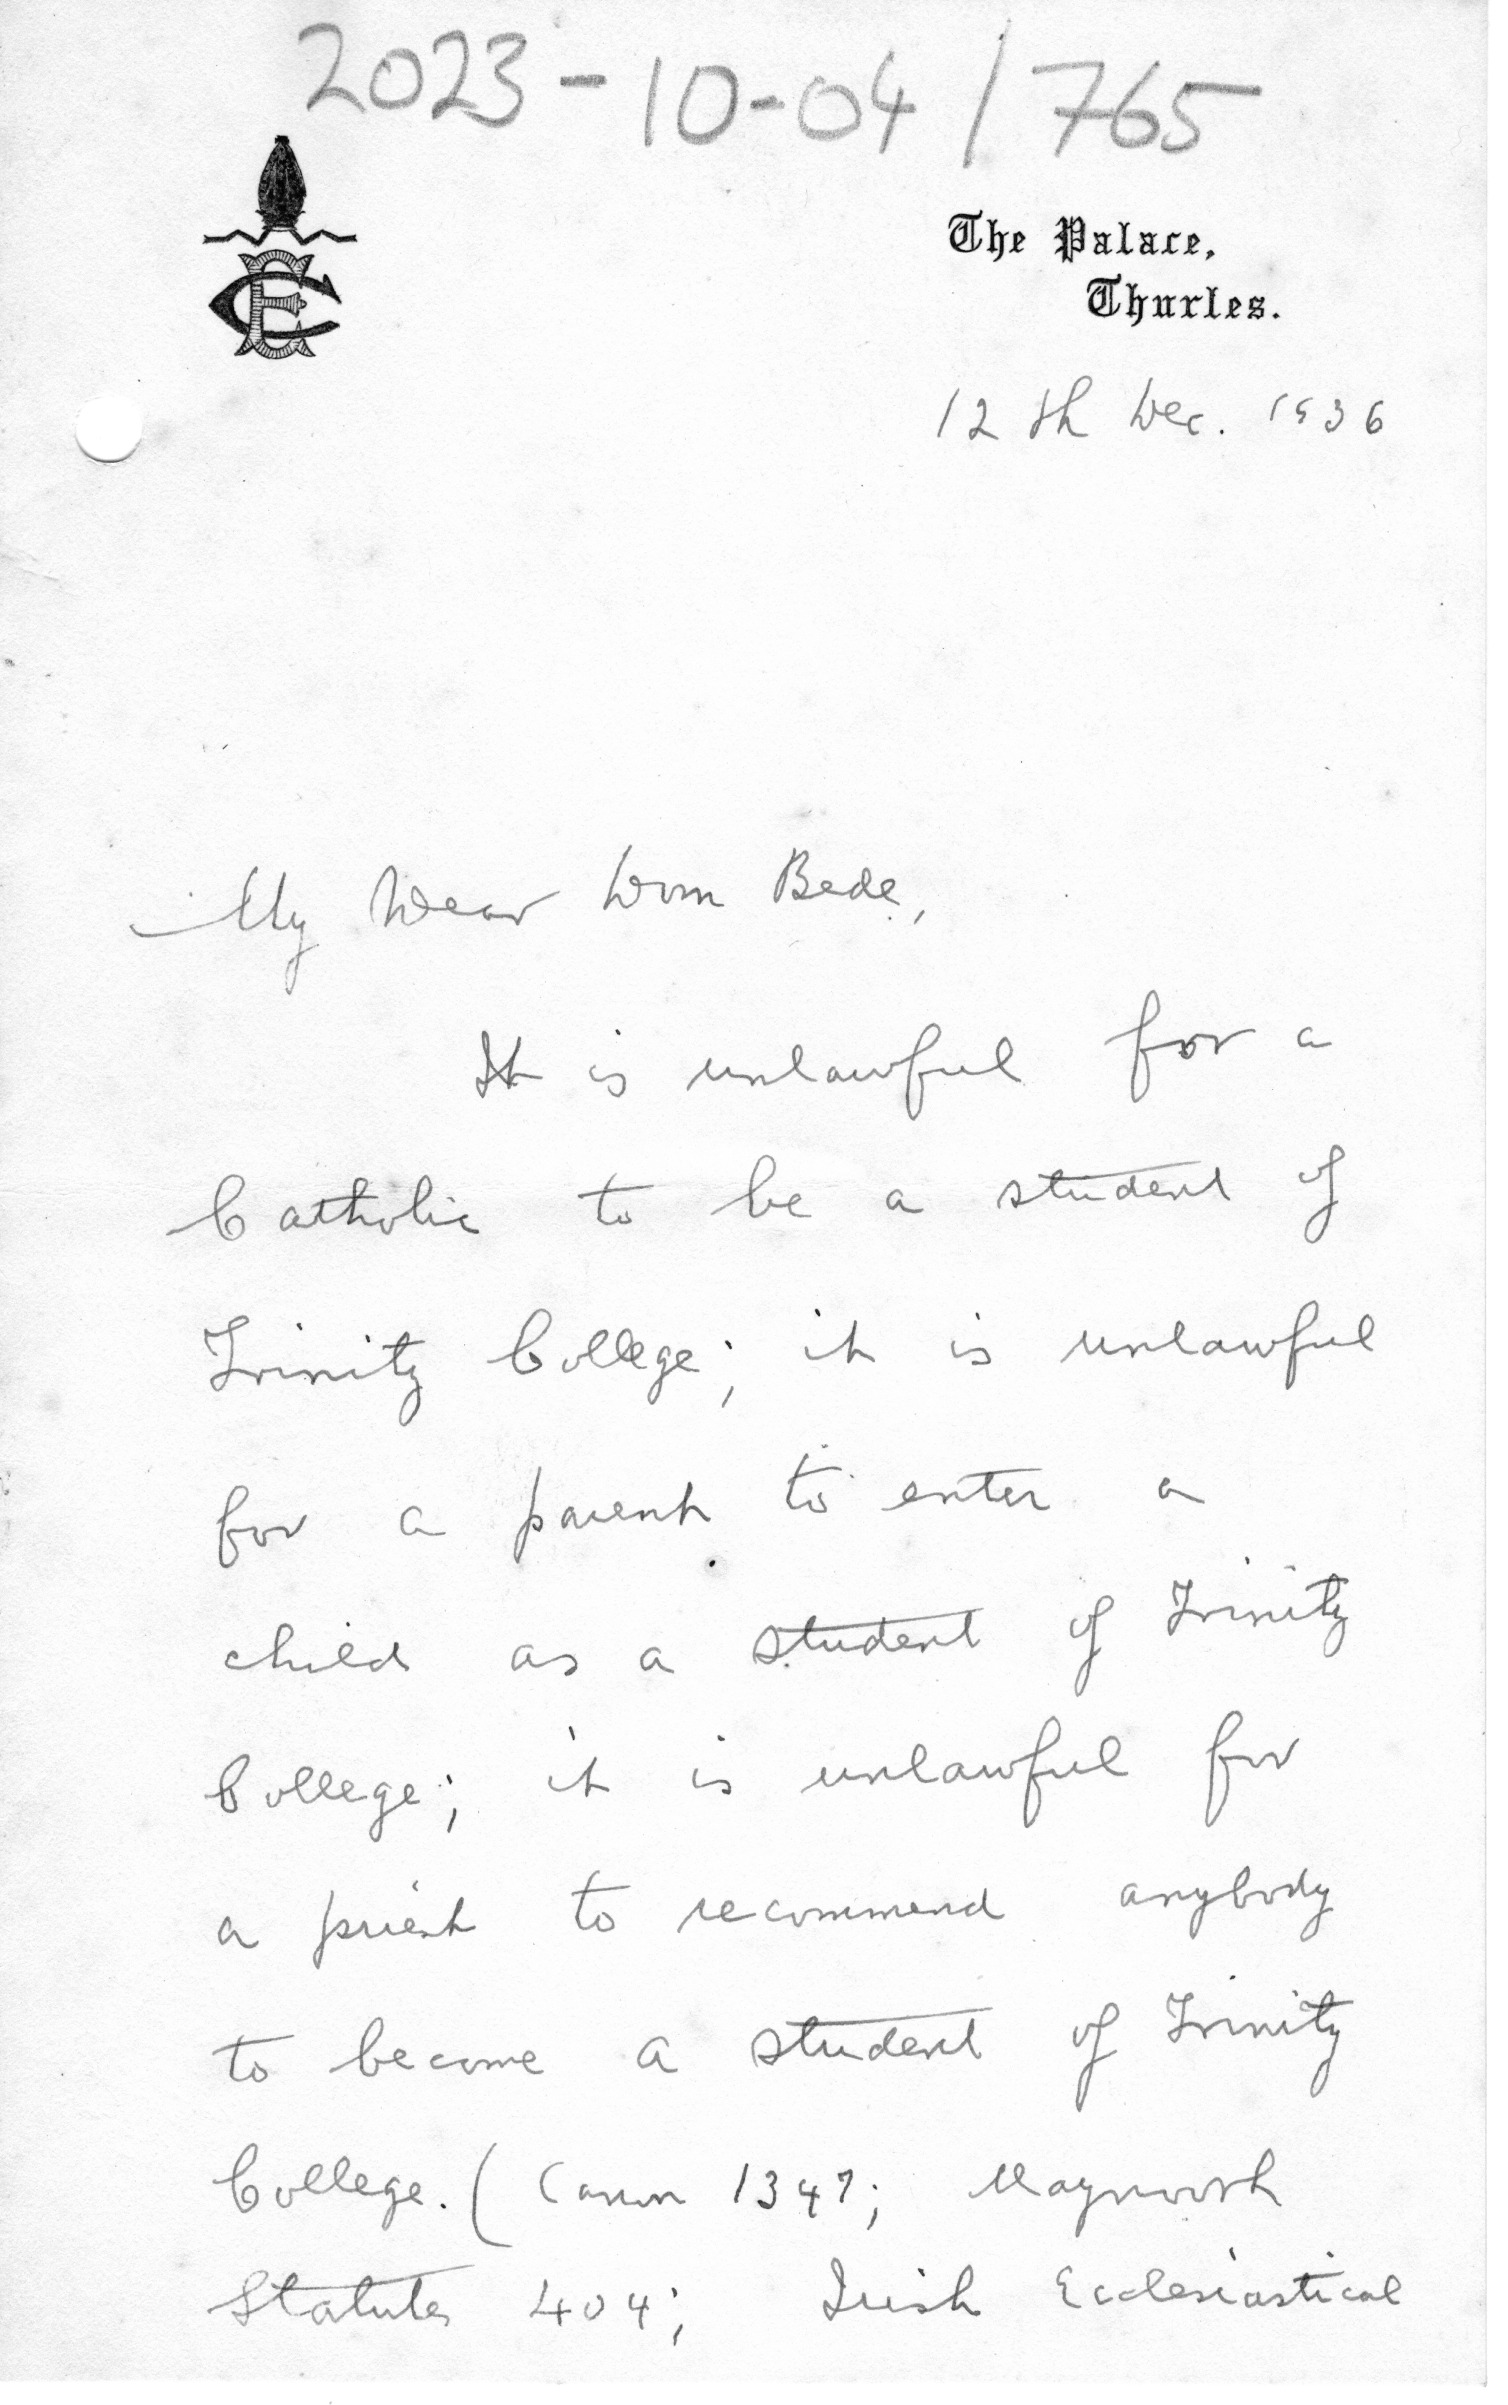 2023-10-04/765
The Palace,
Thurles.
12th Dec. 1936
My Dear Dom Bede,
It is unlawful for a
Catholic to be a student of
Trinity College; it is unlawful
for a parent to enter a
child as a student of Trinity
College; it is unlawful for
a priest to recommend anybody
to become a student of Trinity
College. (Canon 1347; Maynooth
Statutes 404; Irish Ecclesiastical